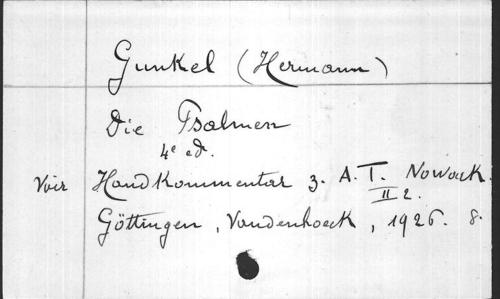 Gunkel (Hermann)
Die Psalmen
4e ed.
Voir Handkommentar z. A.T. Nowack.
II 2.
Göttingen, Vandenhoeck, 1926. 8.